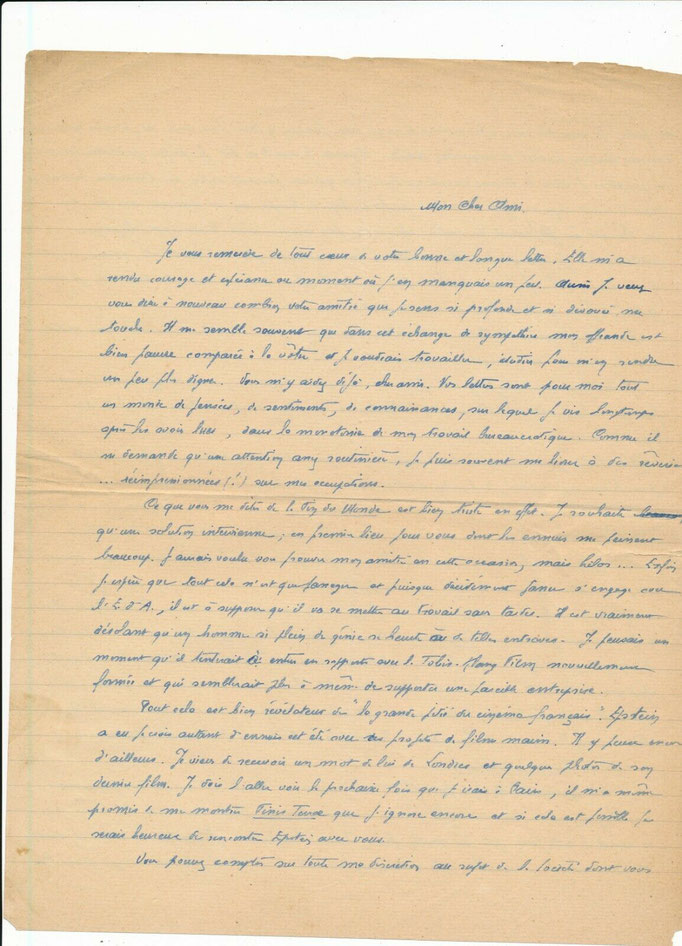 Mon Cher Ami.
Je vous remercie de tout cœur de votre bonne et longue lettre. Elle m'a
rendu courage et espérance au moment où j'en manquais un peu. Aussi je veux
vous dire à nouveau combien votre amitié que je sens si profonde et si dévouée me
touche. Il me semble souvent que dans cet échange de sympathie mon offrande est
bien pauvre comparée à la vôtre et je voudrais travailler, étudier pour m'en rendre
un peu plus digne. Vous m'y aidez déjà, cher ami. Vos lettres sont pour moi tout
un monde de pensées, de sentiments, de connaissances, sur lequel je vis longtemps
après les avoir lues, dans la monotonie de mon travail bureaucratique. Comme il
ne demande qu'une attention assez routinière, je puis souvent me livrer à des rêveries
... (!) sur mes occupations.
Ce que vous me dites de la Fin du Monde est bien triste en effet. Je souhaite
qu'une solution intervienne; en premier lieu pour vous dont les ennuis me peinent
beaucoup. J'aurais voulu vous prouver mon amitié en cette occasion, mais hélas... Enfin
j'espère que tout cela n'est que passager et puisque décidément Gance s'engage avec
l'E.D.A., il est à supposer qu'il va se mettre au travail sans tarder. Il est vraiment
désolant qu'un homme si plein de génie se heurte à de telles entraves. Je pensais un
moment qu'il tenterait d'entrer en rapports avec la Tobis-Klang Film nouvellement
formée et qui semblerait plus à même de supporter une pareille entreprise.
Tout cela est bien révélateur de "la grande pitié du cinéma français". Epstein
a eu je crois autant d'ennuis cet été avec ses projets de films marin. Il y pense encore
d'ailleurs. Je viens de recevoir un mot de lui de Londres et quelques photos de son
dernier film. Je dois l'aller voir la prochaine fois que j'irais à Paris, il m'a même
promis de me montrer Finis Terrae que j'ignore encore et si cela est possible je
serais heureux de rencontrer Epstein avec vous.
Vous pouvez compter sur toute ma discrétion au sujet de la société dont vous